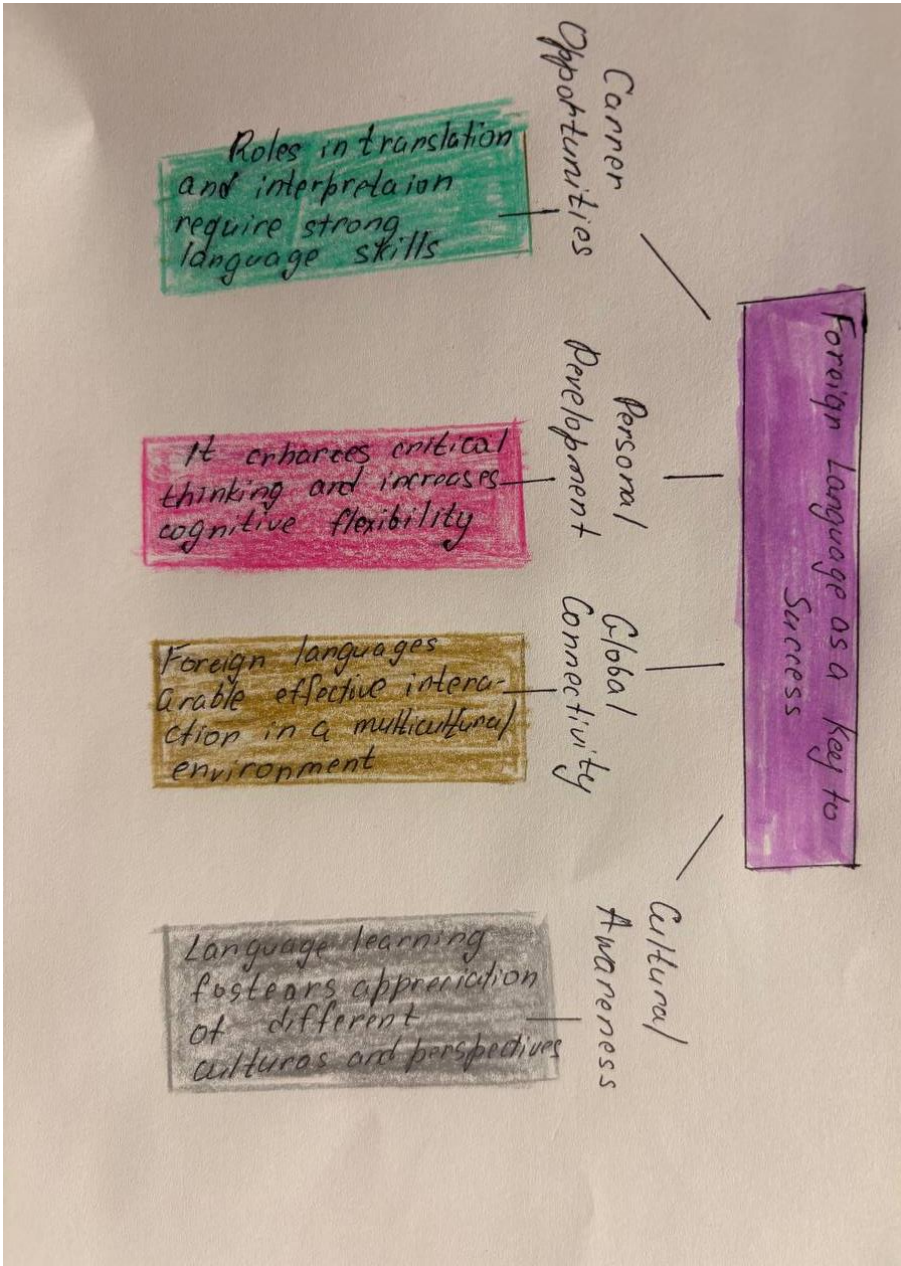 Foreign Language as a key to
Success
Carrer
Opportunities
Roles in translation
and interpretaion
require strong
language skills
Personal
Development
It enhances critical
thinking and increases
cognitive flexibility
Global
Connectivity
Foreign languages
anable effective intera-
ction in a multicultural
environment
Cultural
Awareness
Language learning
fostears appreciation
of different
culturas and perspectives